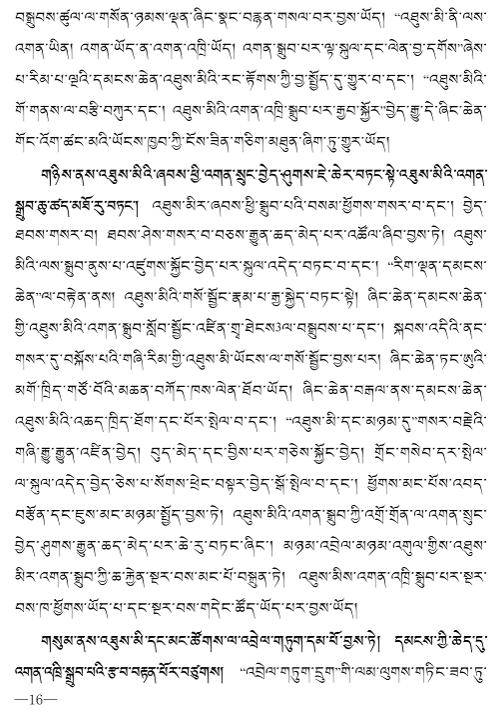 བསྒྲུབས་ཚུལ་ལ་གསོན་ཉམས་ལྡན་ཞིང་སྣང་བརྙན་གསལ་བར་བྱས་ཡོད། “འཐུས་མི་ནི་ལས་
འགན་ཡིན། འགན་ཡོད་ན་འགན་འཁྲི་ཡོད། འགན་སྒྲུབ་པར་ལྟ་སྐུལ་དང་ལེན་བྱ་དགོས”ཞེས་
པ་རིམ་པ་ལྔའི་དམངས་ཆེན་འཐུས་མིའི་རང་རྟོགས་ཀྱི་བྱ་སྤྱོད་དུ་གྱུར་བ་དང་། “འཐུས་མིའི་
གོ་གནས་ལ་བརྩི་བཀུར་དང་། འཐུས་མིའི་འགན་འཁྲི་སྒྲུབ་པར་རྒྱབ་སྐྱོར”བྱེད་རྒྱུ་དེ་ཞིང་ཆེན་
གོང་འོག་ཚང་མའི་ཡོངས་ཁྱབ་ཀྱི་ངོས་ཟིན་གཅིག་མཐུན་ཞིག་ཏུ་གྱུར་ཡོད།
གཉིས་ནས་འཐུས་མིའི་ཞབས་ཕྱི་འགན་སྲུང་བྱེད་ཤུགས་ཇེ་ཆེར་བཏང་སྟེ་འཐུས་མིའི་འགན་
སྒྲུབ་ཆུ་ཚད་མཐོ་རུ་བཏང། འཐུས་མིར་ཞབས་ཕྱི་སྒྲུབ་པའི་བསམ་ཕྱོགས་གསར་བ་དང་། བྱེད་
ཐབས་གསར་བ། ཐབས་ཤེས་གསར་བ་བཅས་རྒྱུན་ཆད་མེད་པར་འཚོལ་ཞིབ་བྱས་ཏེ། འཐུས་
མིའི་ལས་སྒྲུབ་ནུས་པ་འཛུགས་སྐྱོང་བྱེད་པར་སྐུལ་འདེད་བཏང་བ་དང་། “རིག་ལྡན་དམངས་
ཆེན”ལ་བརྟེན་ནས། འཐུས་མིའི་གསོ་སྦྱོང་རྣམ་པ་རྒྱ་སྐྱེད་བཏང་སྟེ། ཞིང་ཆེན་དམངས་ཆེན་
གྱི་འཐུས་མིའི་འགན་སྒྲུབ་སློབ་སྦྱོང་འཛིན་གྲྭ་ཐེངས3ལ་བསྒྲུབས་པ་དང་། སྐབས་འདིའི་ནང་
གསར་དུ་བསྐོས་པའི་གཞི་རིམ་གྱི་འཐུས་མི་ཡོངས་ལ་གསོ་སྦྱོང་བྱས་པར། ཞིང་ཆེན་ཏང་ཨུའི་
མགོ་ཁྲིད་གཙོ་བོའི་མཆན་བཀོད་ཁས་ལེན་ཐོབ་ཡོད། ཞིང་ཆེན་བརྒལ་ནས་དམངས་ཆེན་
འཐུས་མིའི་འཆད་ཁྲིད་ཐོག་དང་པོར་སྤེལ་བ་དང་། “འཐུས་མི་དང་མཉམ་དུ”གསར་བརྗེའི་
གཞི་རྒྱུ་རྒྱུན་འཛིན་བྱེད། བུད་མེད་དང་བྱིས་པར་གཅེས་སྐྱོང་བྱེད། གྲོང་གསེབ་དར་སྤེལ་
ལ་སྐུལ་འདེད་བྱེད་ཅེས་པ་སོགས་ཕྲེང་བསྟར་བྱེད་སྒོ་སྤེལ་བ་དང་། ཕྱོགས་མང་པོས་འབད་
བརྩོན་དང་དུས་མང་མཉམ་སྤྱོད་བྱས་ཏེ། འཐུས་མིའི་འགན་སྒྲུབ་ཀྱི་འགྲོ་གྲོན་ལ་འགན་སྲུང་
བྱེད་ཤུགས་རྒྱུན་ཆད་མེད་པར་ཆེ་རུ་བཏང་ཞིང་། མཉམ་འབྲེལ་མཉམ་འགུལ་གྱིས་འཐུས་
མིར་འགན་སྒྲུབ་ཀྱི་ཆ་རྐྱེན་སྔར་བས་མང་པོ་བསྐྲུན་ཏེ། འཐུས་མིས་འགན་འཁྲི་སྒྲུབ་པར་སྔར་
བས་ཁ་ཕྱོགས་ཡོད་པ་དང་སྔར་བས་གདེང་ཚོད་ཡོད་པར་བྱས་ཡོད།
གསུམ་ནས་འཐུས་མི་དང་མང་ཚོགས་ལ་འབྲེལ་གཏུག་དམ་པོ་བྱས་ཏེ། དམངས་ཀྱི་ཆེད་དུ་
འགན་འཁྲི་སྒྲུབ་པའི་རྩ་བ་བརྟན་པོར་བཙུགས། “འབྲེལ་གཏུག་དྲུག”གི་ལམ་ལུགས་གཏིང་ཟབ་ཏུ་
—16—